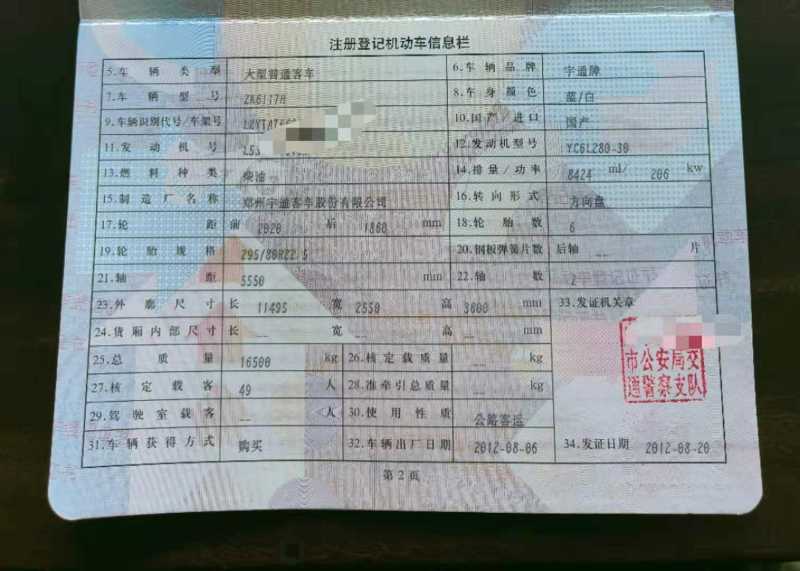 注册登记机动车信息栏
5.车辆类型 大型普通客车 6.车辆品牌 宇通牌
7.车辆型号 ZK6117H 8.车身颜色 蓝/白
9.车辆识别代号/车架号 10.国产/进口 国产
11.发动机号 12.发动机型号 YC6L280-30
13.燃料种类 柴油 14.排量/功率 8424 ml/ 206 kw
15.制造厂名称 郑州宇通客车股份有限公司 16.转向形式 方向盘
17.轮距 前 2020 后 1860 mm 18.轮胎数 6
19.轮胎规格 295/80R22.5 20.钢板弹簧片数 后轴 -- 片
21.轴距 5550 mm 22.轴数 2
23.外廓尺寸 长 11495 宽 2550 高 3600 mm 33.发证机关章
24.货厢内部尺寸 长 -- 宽 -- 高 -- mm
25.总质量 16500 kg 26.核定载质量 -- kg
市公安局交
通警察支队
27.核定载客 49 人 28.准牵引总质量 -- kg
29.驾驶室载客 -- 人 30.使用性质 公路客运
31.车辆获得方式 购买 32.车辆出厂日期 2012-08-06 34.发证日期 2012-08-20
第2页